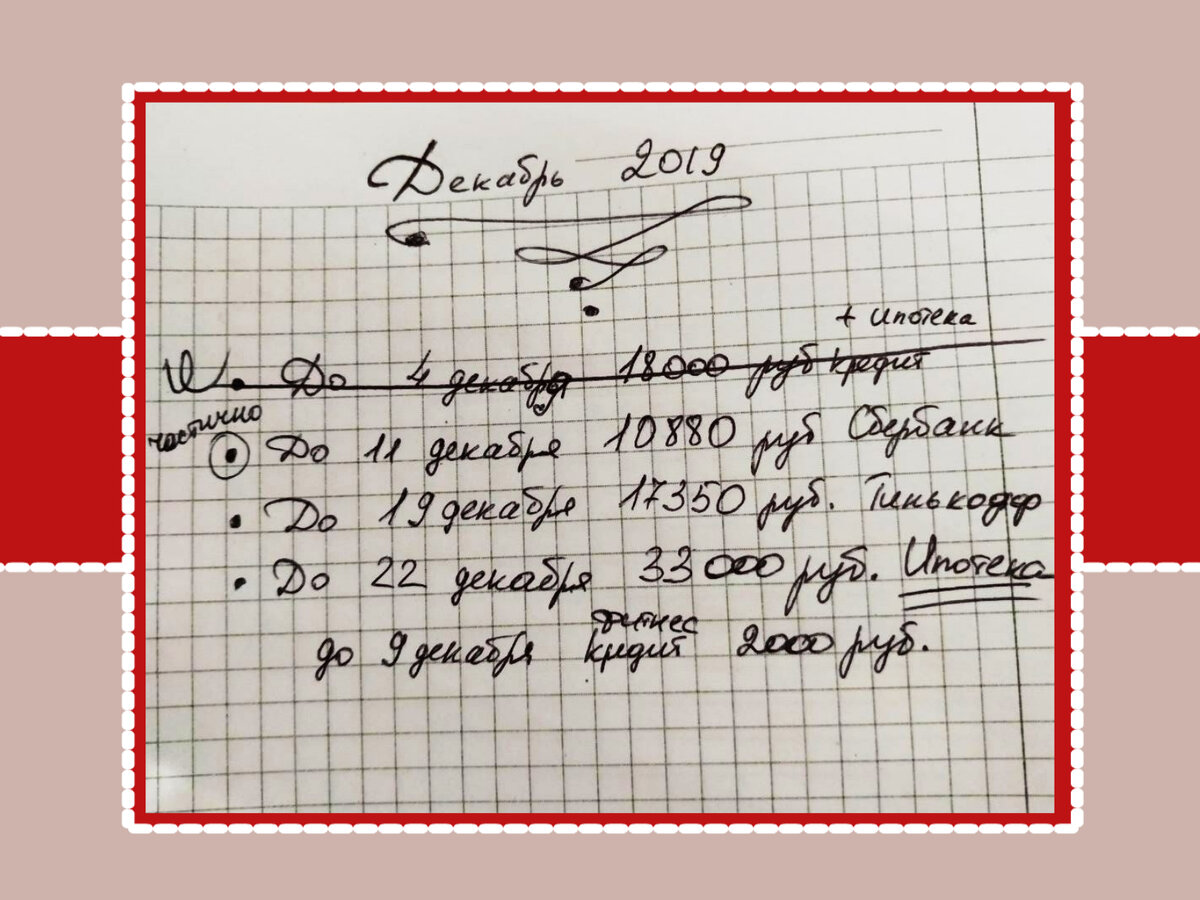 Декабрь 2019
+ ипотека
До 4 декабря 18000 руб кредит
частично
До 11 декабря 10880 руб Сбербанк
До 19 декабря 17350 руб. Тинькофф
До 22 декабря 33000 руб. Ипотека
фитнес
до 9 декабря кредит 2000 руб.